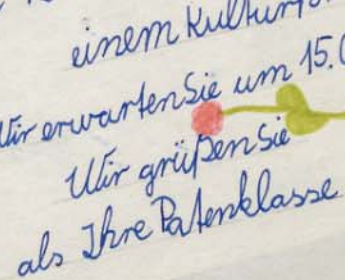 einem
Wir erwarten Sie um 15.0
Wir grüßen Sie
als Ihre Patenklasse